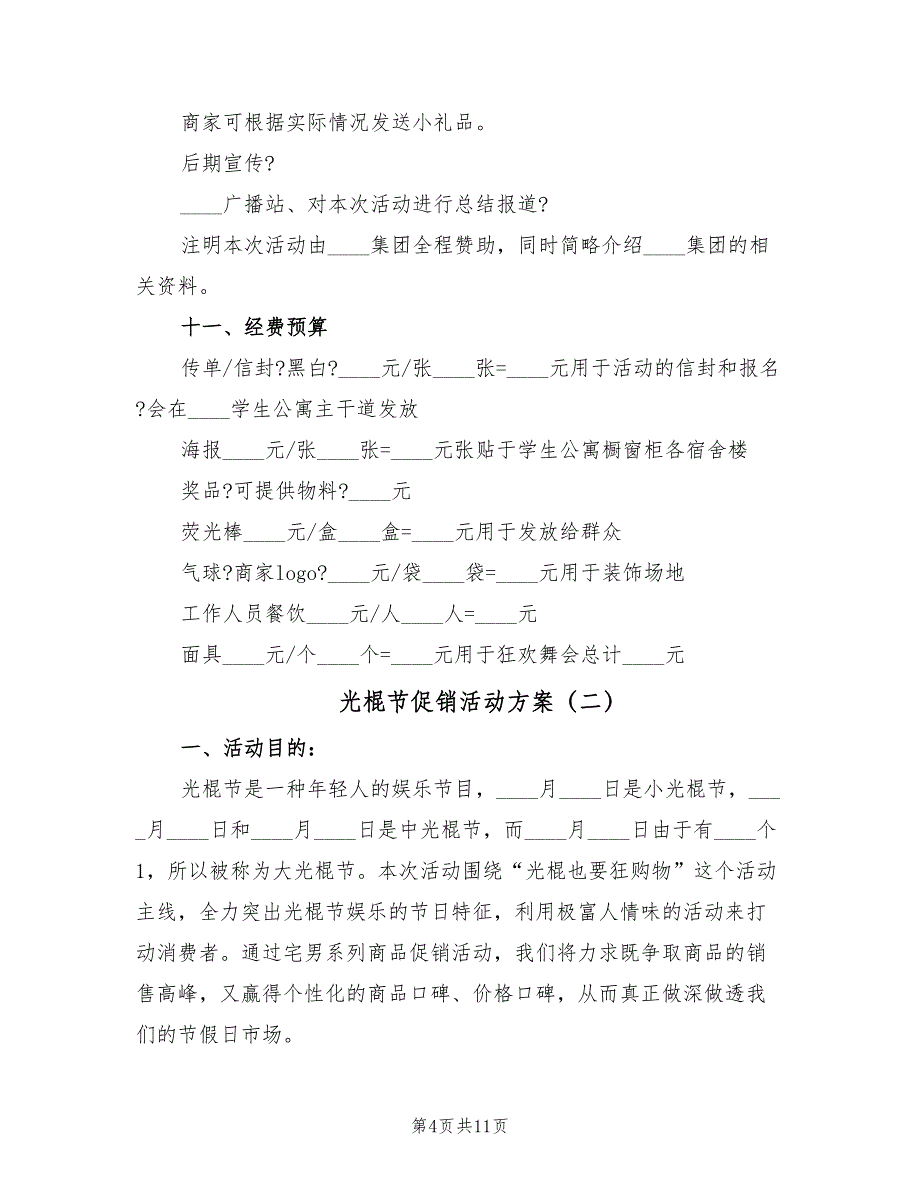 商家可根据实际情况发送小礼品。
后期宣传?
____广播站、对本次活动进行总结报道?
注明本次活动由____集团全程赞助，同时简略介绍____集团的相
关资料。
十一、经费预算
传单/信封?黑白?____元/张____张=____元用于活动的信封和报名
?会在____学生公寓主干道发放
海报____元/张____张=____元张贴于学生公寓橱窗柜各宿舍楼
奖品?可提供物料?____元
荧光棒____元/盒____盒=____元用于发放给群众
气球?商家logo?____元/袋____袋=____元用于装饰场地
工作人员餐饮____元/人____人=____元
面具____元/个____个=____元用于狂欢舞会总计____元
光棍节促销活动方案（二）
一、活动目的：
光棍节是一种年轻人的娱乐节目，____月____日是小光棍节，___
_月____日和____月____日是中光棍节，而____月____日由于有____个
1，所以被称为大光棍节。本次活动围绕“光棍也要狂购物”这个活动
主线，全力突出光棍节娱乐的节日特征，利用极富人情味的活动来打
动消费者。通过宅男系列商品促销活动，我们将力求既争取商品的销
售高峰，又赢得个性化的商品口碑、价格口碑，从而真正做深做透我
们的节假日市场。
第4页共11页